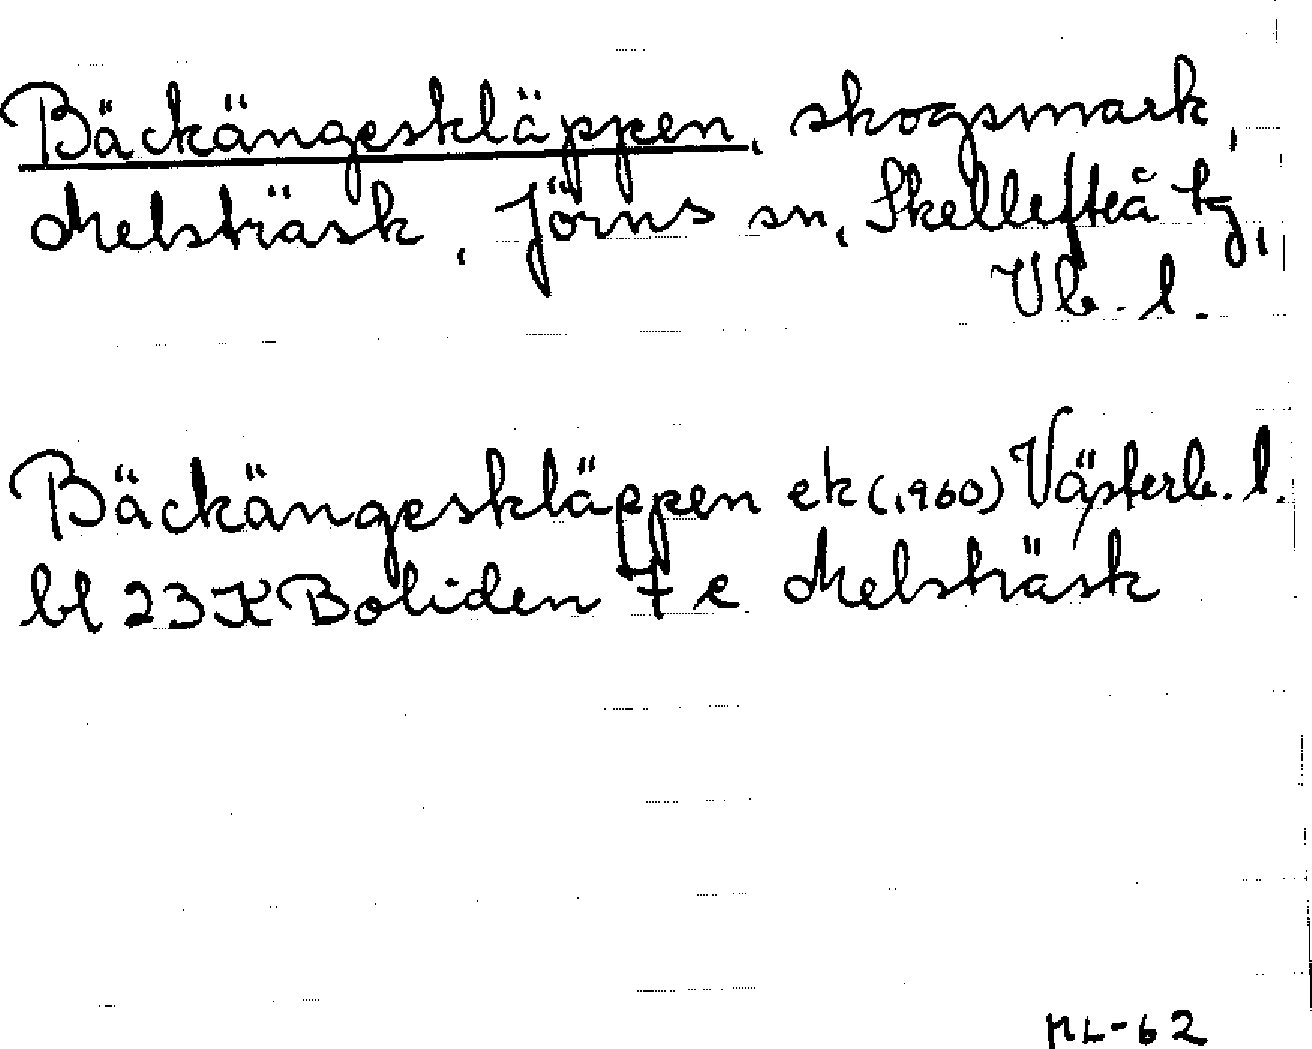 Bäckängeskläppen, skogsmark,
Melsträsk, Jörns sn, Skellefteå tg,
Vb. l.
Bäckängeskläppen ek (1960) Västerb. l.
bl 23 K Boliden 7 e Melsträsk
ML-62